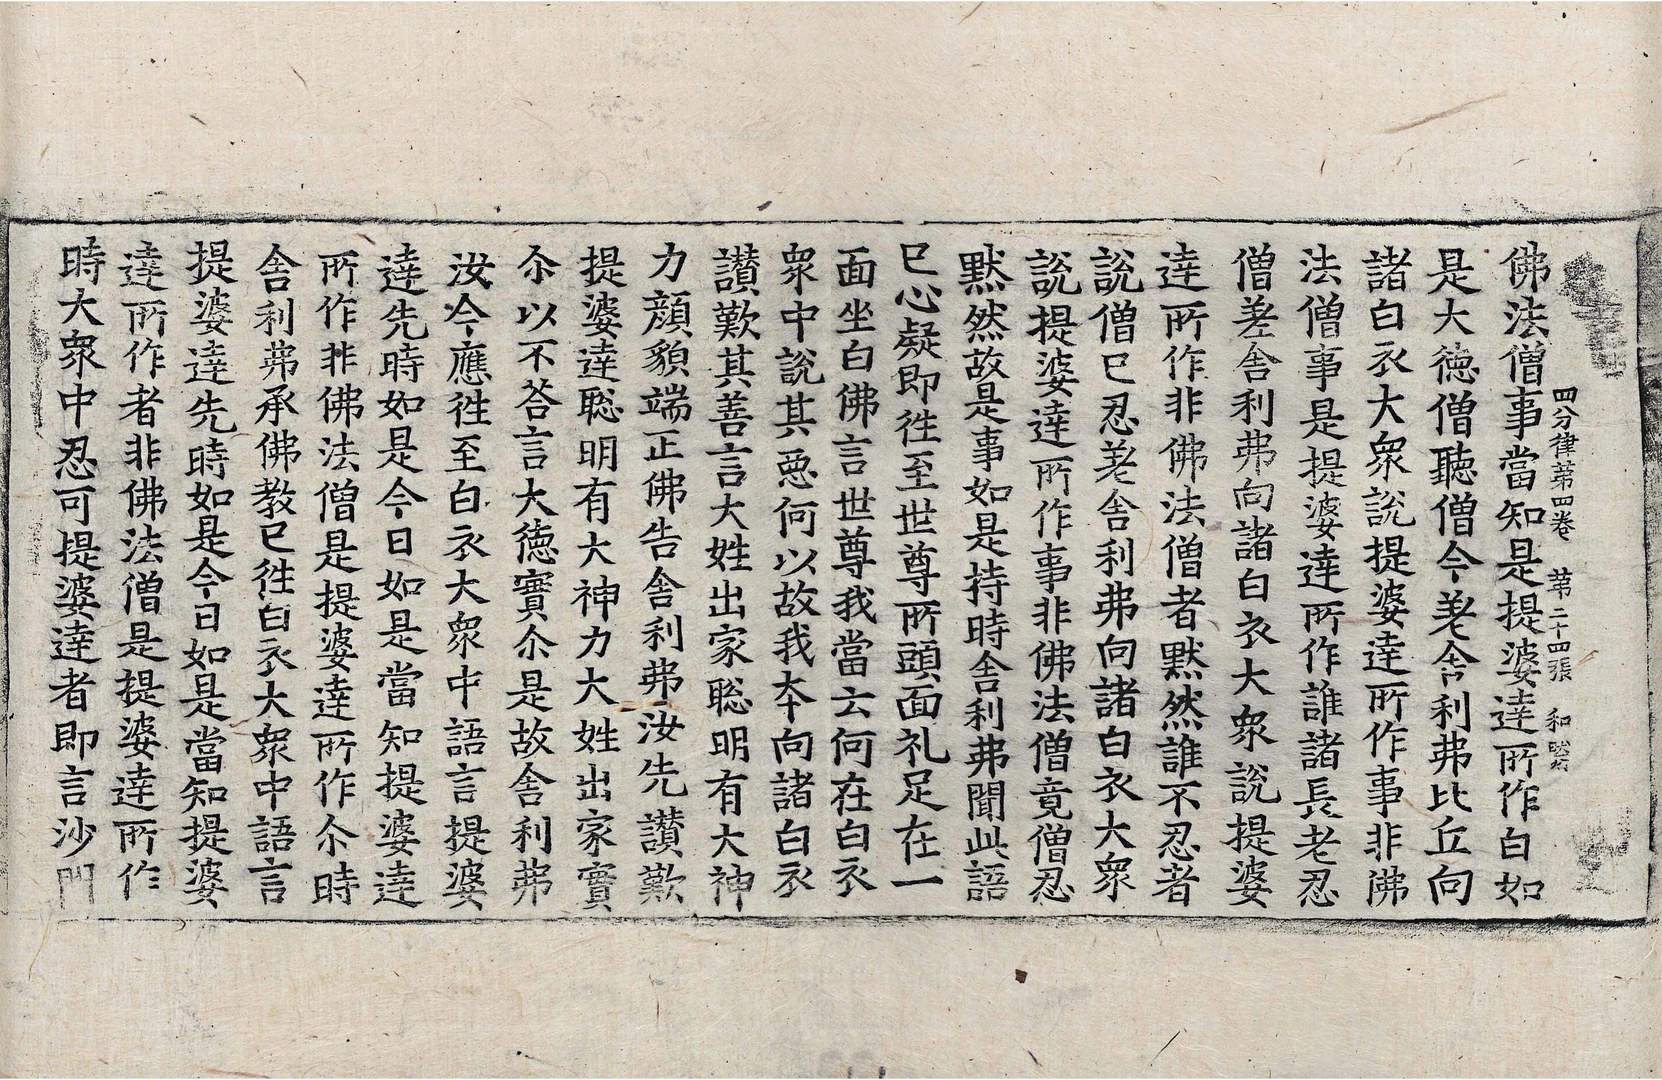 四分律苐四卷 苐二十四張 和
佛法僧事當知是提婆達所作白如
是大德僧聽僧今差舍利弗比丘向
諸白衣大衆說提婆達所作事非佛
法僧事是提婆達所作誰諸長老忍
僧差舍利弗向諸白衣大衆說提婆
達所作非佛法僧者默然誰不忍者
說僧已忍差舍利弗向諸白衣大衆
說提婆達所作事非佛法僧竟僧忍
默然故是事如是持時舍利弗聞此語
已心疑即徃至世尊所頭面礼足在一
面坐白佛言世尊我當云何在白衣
衆中說其惡何以故我夲向諸白衣
讃歎其善言大姓出家聡明有大神
力顔貌端正佛告舍利弗汝先讃歎
提婆達聡明有大神力大姓出家實
尒以不荅言大德實尒是故舍利弗
汝今應徃至白衣大衆中語言提婆
達先時如是今日如是當知提婆達
所作非佛法僧是提婆達所作尒時
舍利弗承佛教已徃白衣大衆中語言
提婆達先時如是今日如是當知提婆
達所作者非佛法僧是提婆達所作
時大衆中忍可提婆達者即言沙門